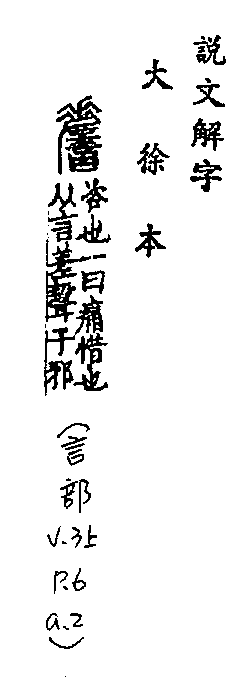 説文解字
大徐本
𧪘
咨也一曰痛惜也
从言差聲子邪
(言部
V.3上
P.6
a.2)